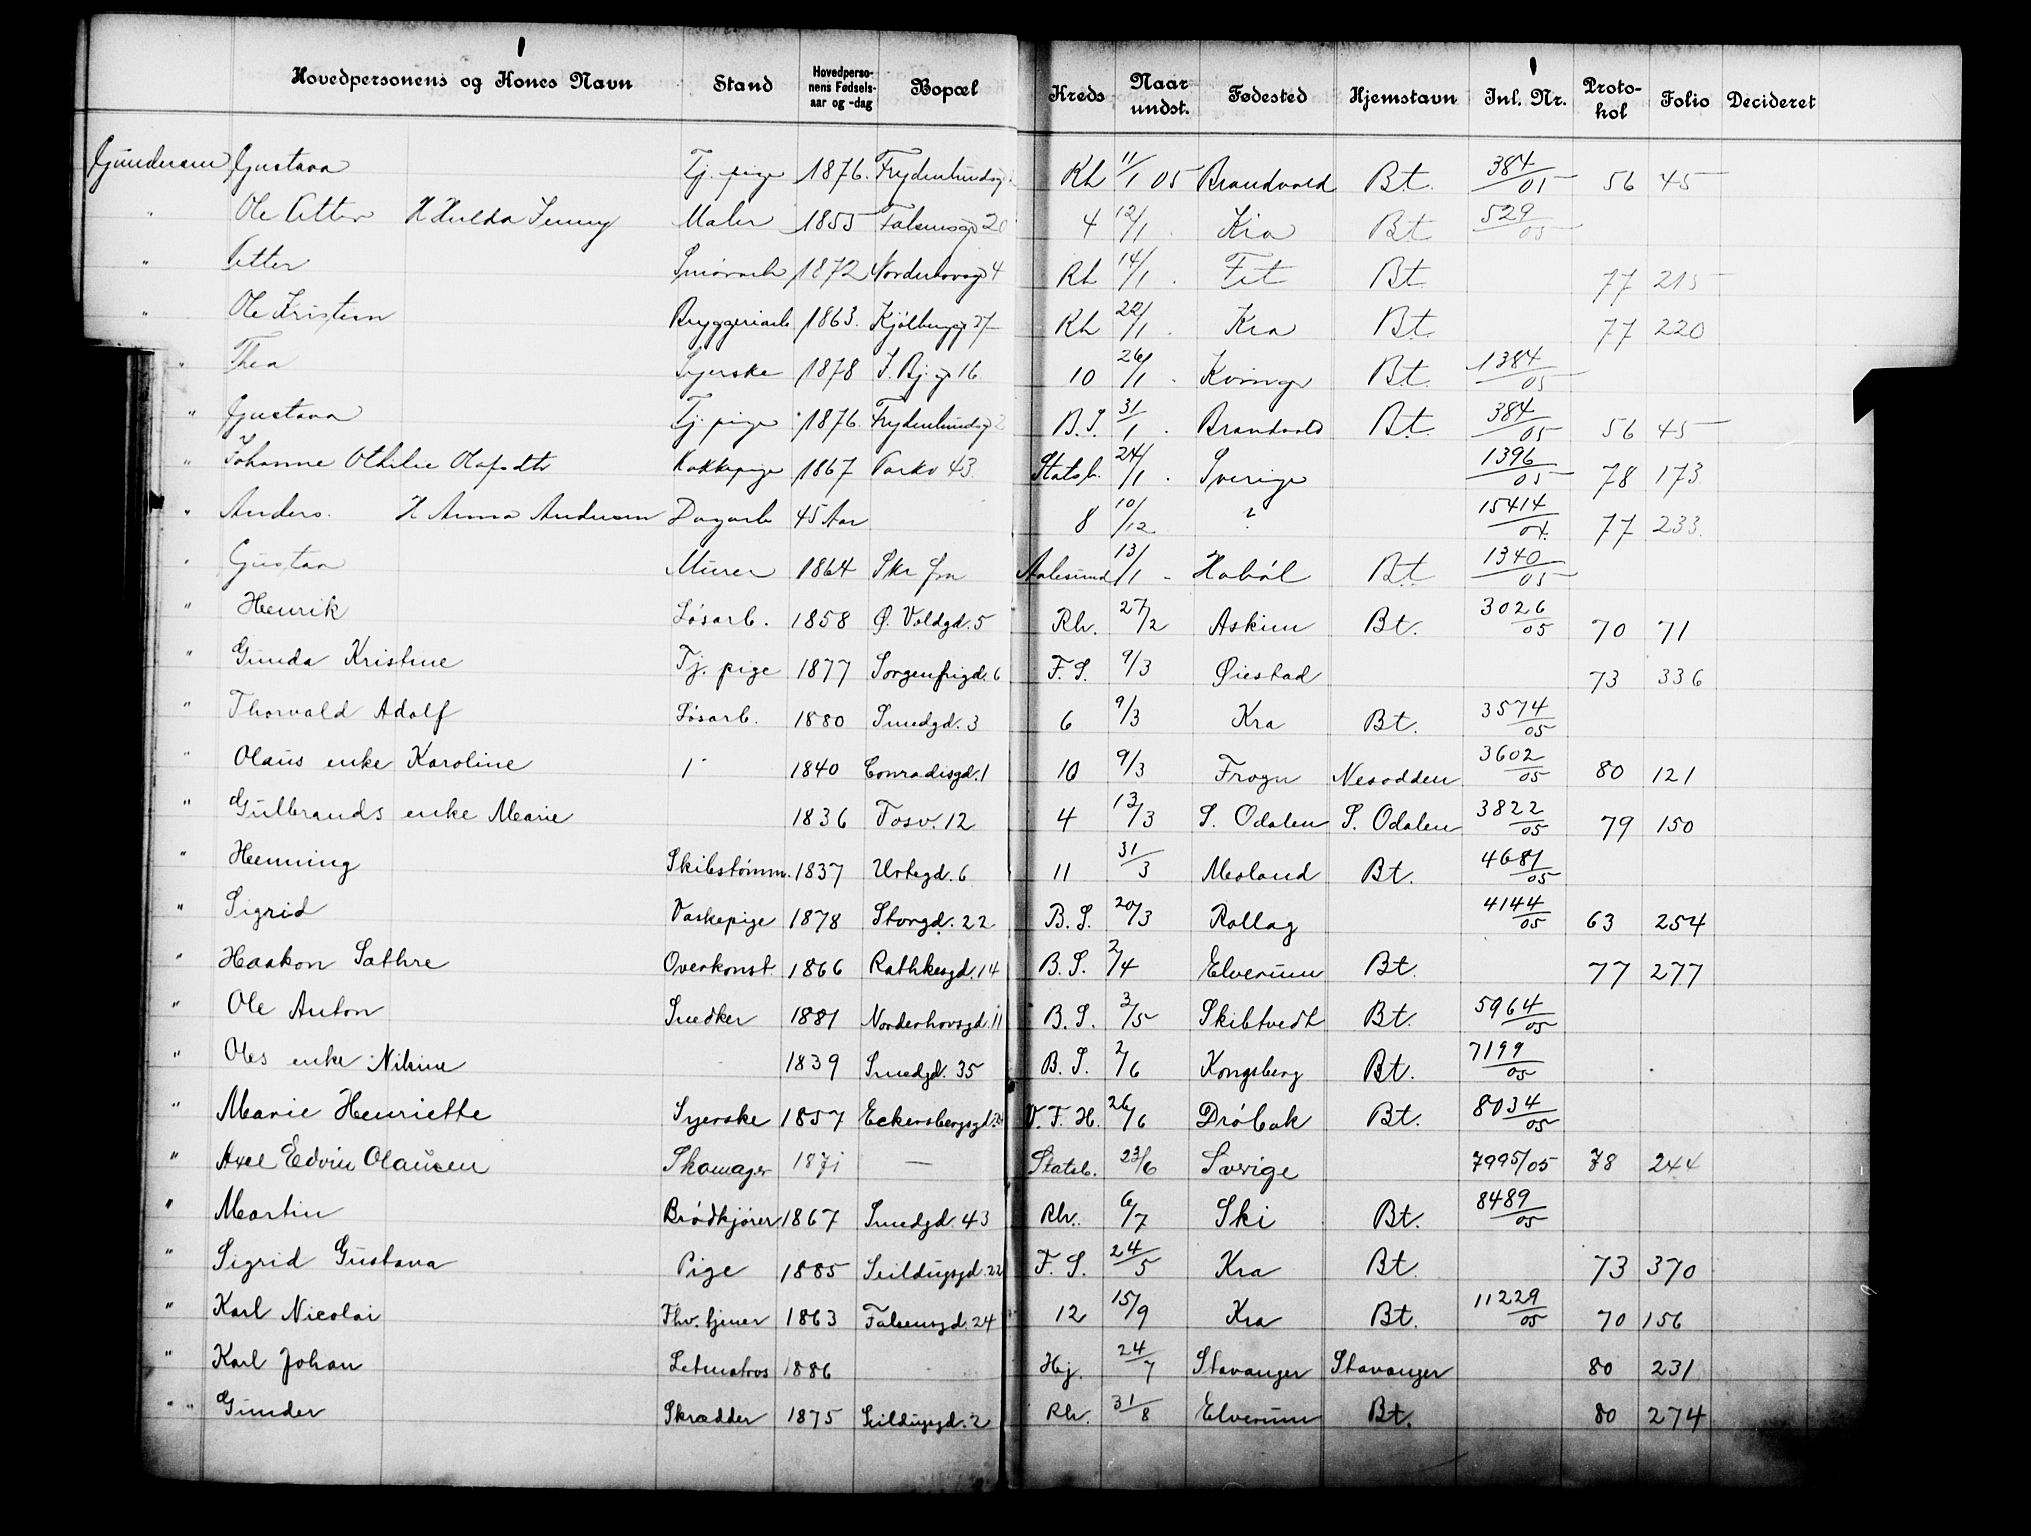 Hovedpersonens og Kones Navn Stand Hovedperso-nens Fødsels-aar og -dag Bopæl Kreds Naar undst. Fødested Hjemstavn Inl. Nr. Proto-kol Folio Decideret
Gundersen Gustava Tj. pige 1876. Frydenlundsg Rh 11/1 05 Brandvold Bt. 384/05 56 45
" Ole Petter H Hulda Jenny Maler 1855 Falsensg 20 4 12/1 . Kra Bt 529/05
" Petter Smørarb 1872 Norderhovsg 4 Rh 14/1 . Fet Bt 77 215
" Ole Kristian Bryggeriarb 1863. Kjølbergg 27 Rh 22/1 . Kra Bt. 77 220
" Thea Syerske 1878 S. Bj. g 16 10 26/1 . Kvinger Bt. 1384/05
" Gustava Tj. pige 1876. Frydenlundsg 2 B. S. 31/1 . Brandvold Bt. 384/05 56 45
" Johanne Othilie Olafsdtr Kokkepige 1867 Parkv 43. Statsb. 24/1 . Sverige 1396/05 78 173
" Anders. H Anna Andersen Dagarb 45 Aar 8 10/12 ? 15414/04. 77 233.
" Gustav Murer 1864 Skr fra Aalesund 13/1 - Hobøl Bt 1340/05
" Henrik Løsarb. 1858 Ø. Voldgd. 5 Rh. 27/2 Askim Bt. 3026/05 70 71
" Gunda Kristine Tj. pige 1877 Sorgenfrigd. 6 F. S. 9/3 Øiestad 73 336
" Thorvald Adolf Løsarb. 1880 Smedgd. 3 6 9/3 Kra Bt. 3574/05
" Olaus enke Karoline 1840 Conradisgd. 1 10 9/3 Frogn Nesodden 3602/05 80 121
" Gulbrands enke Marie 1836 Fosv. 12 4 13/3 S. Odalen S. Odalen 3822/05 79 150
" Henning Skibstømm. 1837 Urtegd. 6 11 31/3 Moland Bt. 4681/05
" Sigrid Vaskepige 1878 Storgd. 22 B. S. 20/3 Rollag 4144/05 63 254
" Haakon Sathre Overkonst. 1866 Rathkesgd. 14 B. S. 2/4 Elverum Bt. 77 277
" Ole Anton Snedker 1881 Norderhovsgd. 11 B. S. 3/5 Skibtvedt Bt. 5964/05
" Oles enke Nilsine 1839 Smedgd. 35 B. S. 2/6 Kongsberg Bt. 7199/05
" Marie Henriette Syerske 1857 Eckersbergsgd. V. F. H. 26/6 Drøbak Bt. 8034/05
" Axel Edvin Olausen Skomager 1871 — Statsb. 23/6 Sverige 7995/05 78 244
" Martin Brødkjører 1867 Smedgd. 43 Rh. 6/7 Ski Bt. 8489/05
" Sigrid Gustava Pige 1885 Seildugsgd. 22 F. S. 24/5 Kra Bt. 73 370
" Karl Nicolai Thv. tjener 1863 Falsensgd. 24 12 15/9 Kra Bt. 11229/05 70 156
" Karl Johan Letmatros 1886 Hj. 24/7 Stavanger Stavanger 80 231
" " Gunder Skrædder 1875 Seildugsgd. 2 Rh. 31/8 Elverum Bt. 80 274